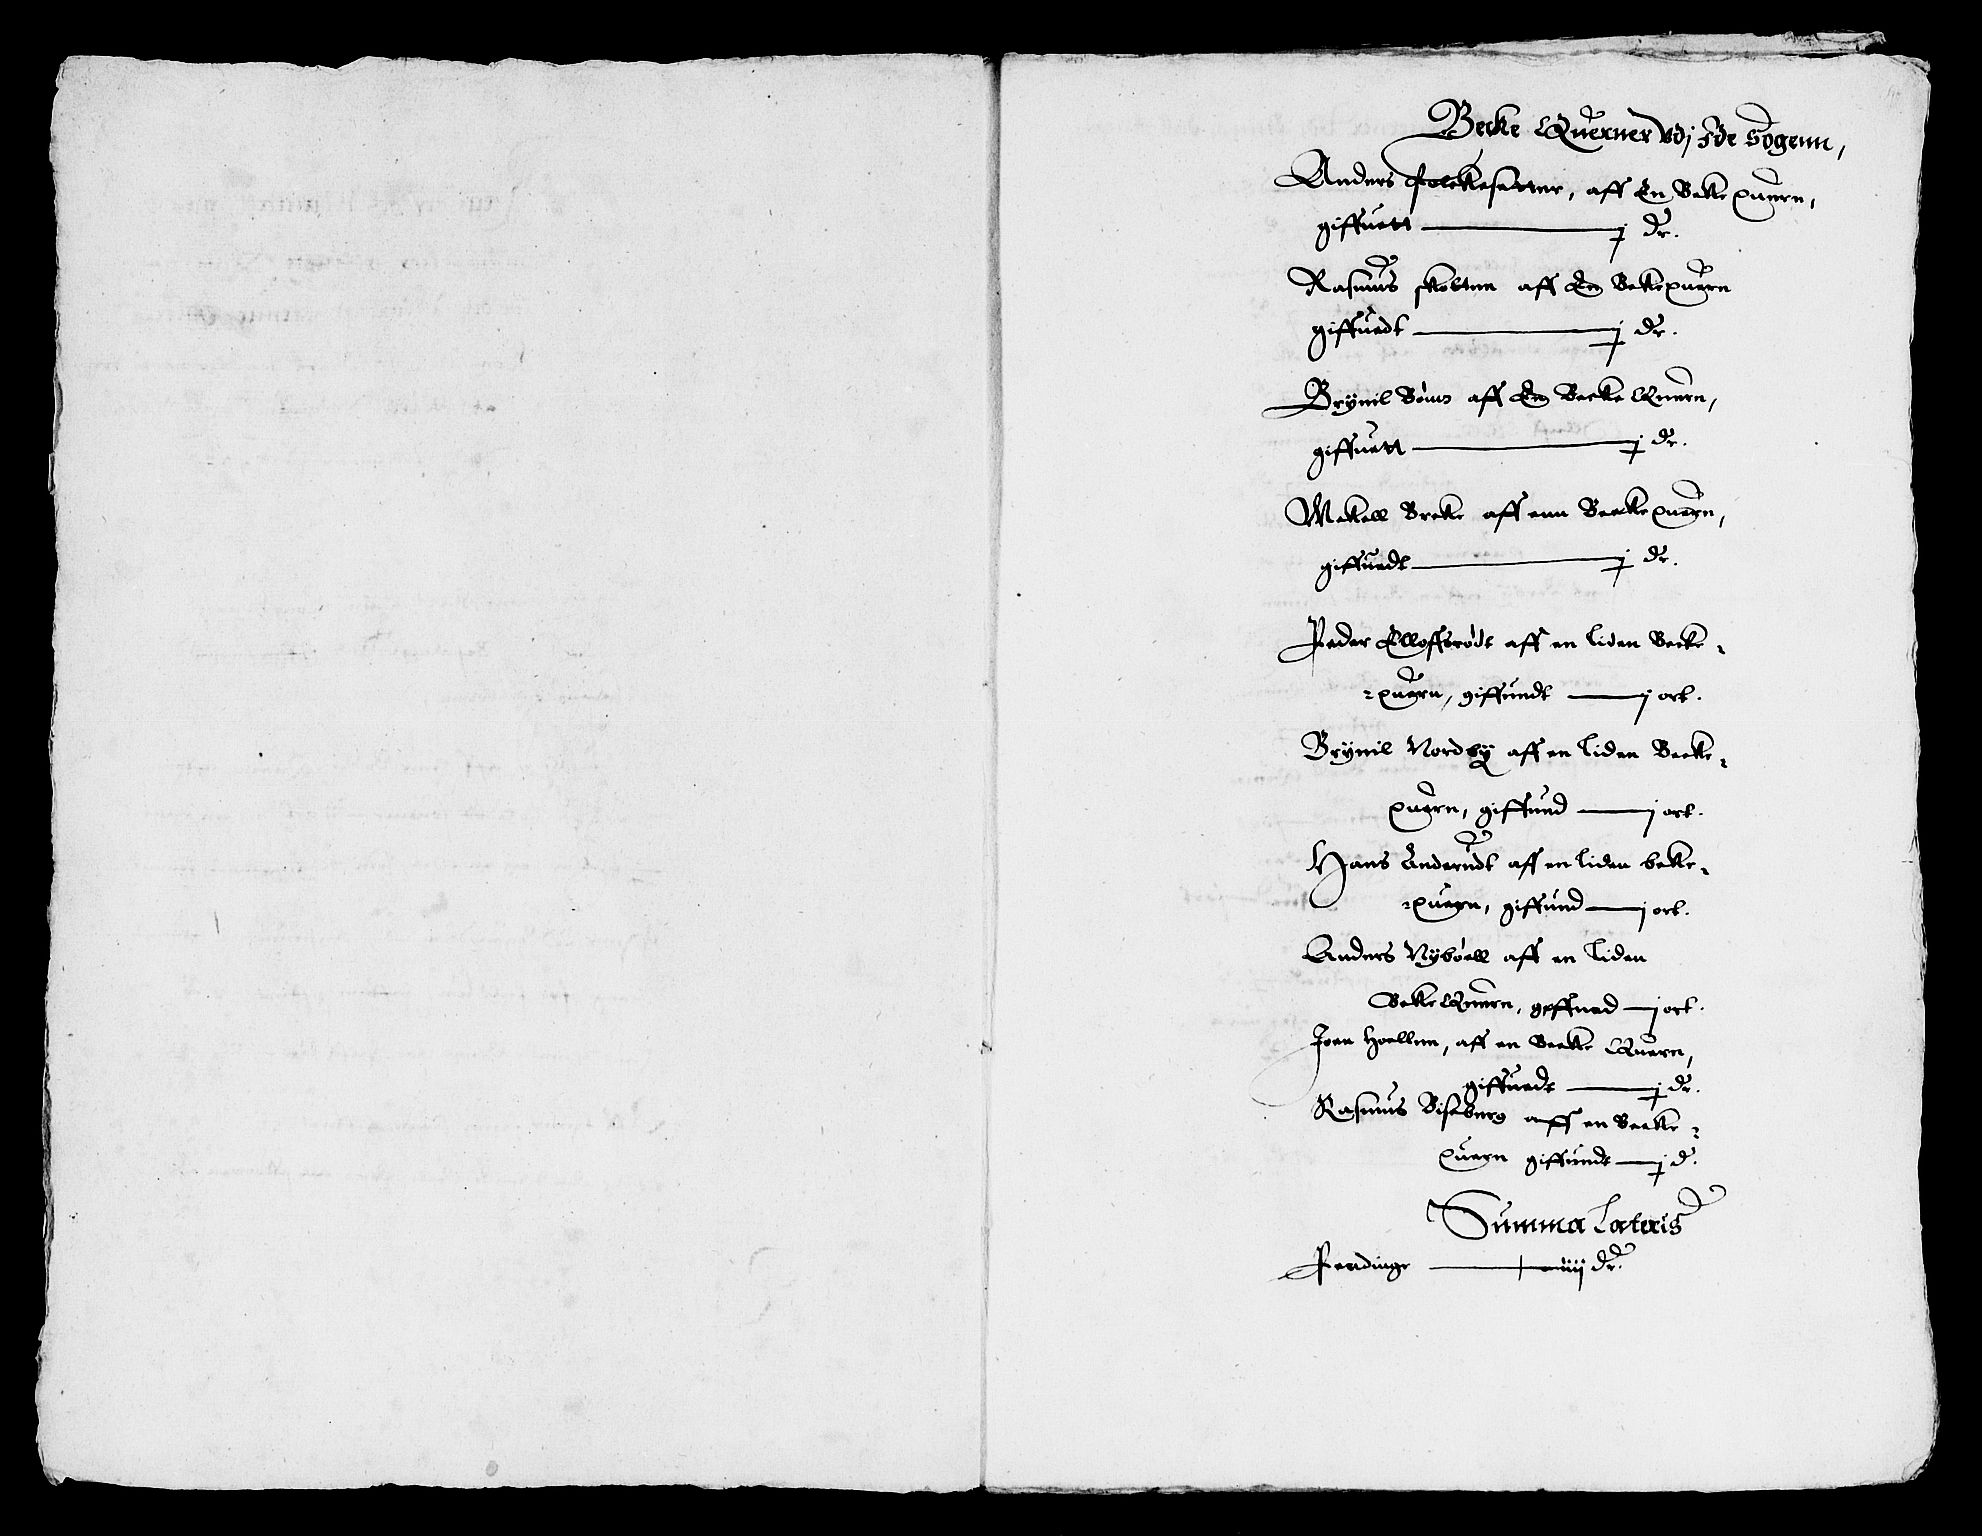 Becke Querner vdj Ide sogenn,
Anders folckesetter, aff En Becke quern,
giffuett — j dr.
Rasmus skolten aff En Beckequern
giffuedt — j dr.
Brynil Bøms aff En Becke Quern,
giffuett — j dr.
Mekell Breke aff enn Beckequern,
giffuedt — j dr.
Peder Elloffsrødt aff en liden Becke-
quern, giffuindt — j ort.
Brynil Nordby aff en liden Becke-
quern, giffuid — j ort.
Hans Anderudt aff en liden beke-
quern, giffuid — j ort.
Anders Nybøell aff en liden
Becke Quern, geffued — j ort.
Joen hoellen, aff en Becke Quern,
giffuedt — j dr.
Rasmus Biseberg aff en Becke-
quern giffuindt — j d.
Summa Lateris
Pendinge — dr.